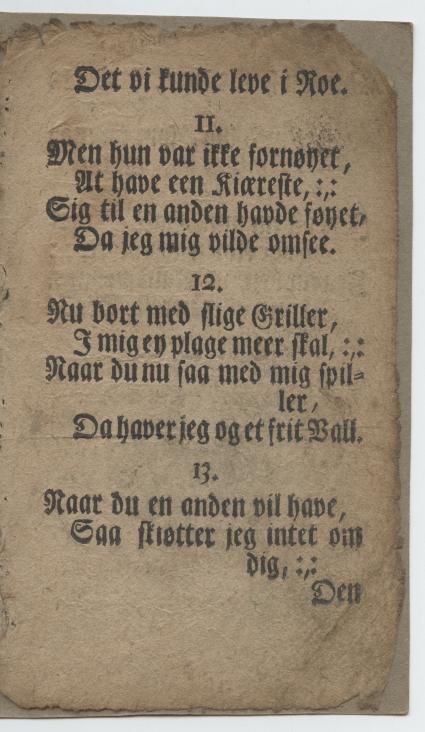 Det vi kunde leve i Roe.
11.
Men hun var ikke fornøyet,
At have een Kiæreste, :,:
Sig til en anden havde føyet,
Da jeg mig vilde omsee.
12.
Nu bort med slige Griller,
I mig ey plage meer skal, :,:
Naar du nu saa med mig spil-
ler,
Da haver jeg og et frit Vall.
13.
Naar du en anden vil have,
Saa skiøtter jeg intet om
dig, :,:
Den